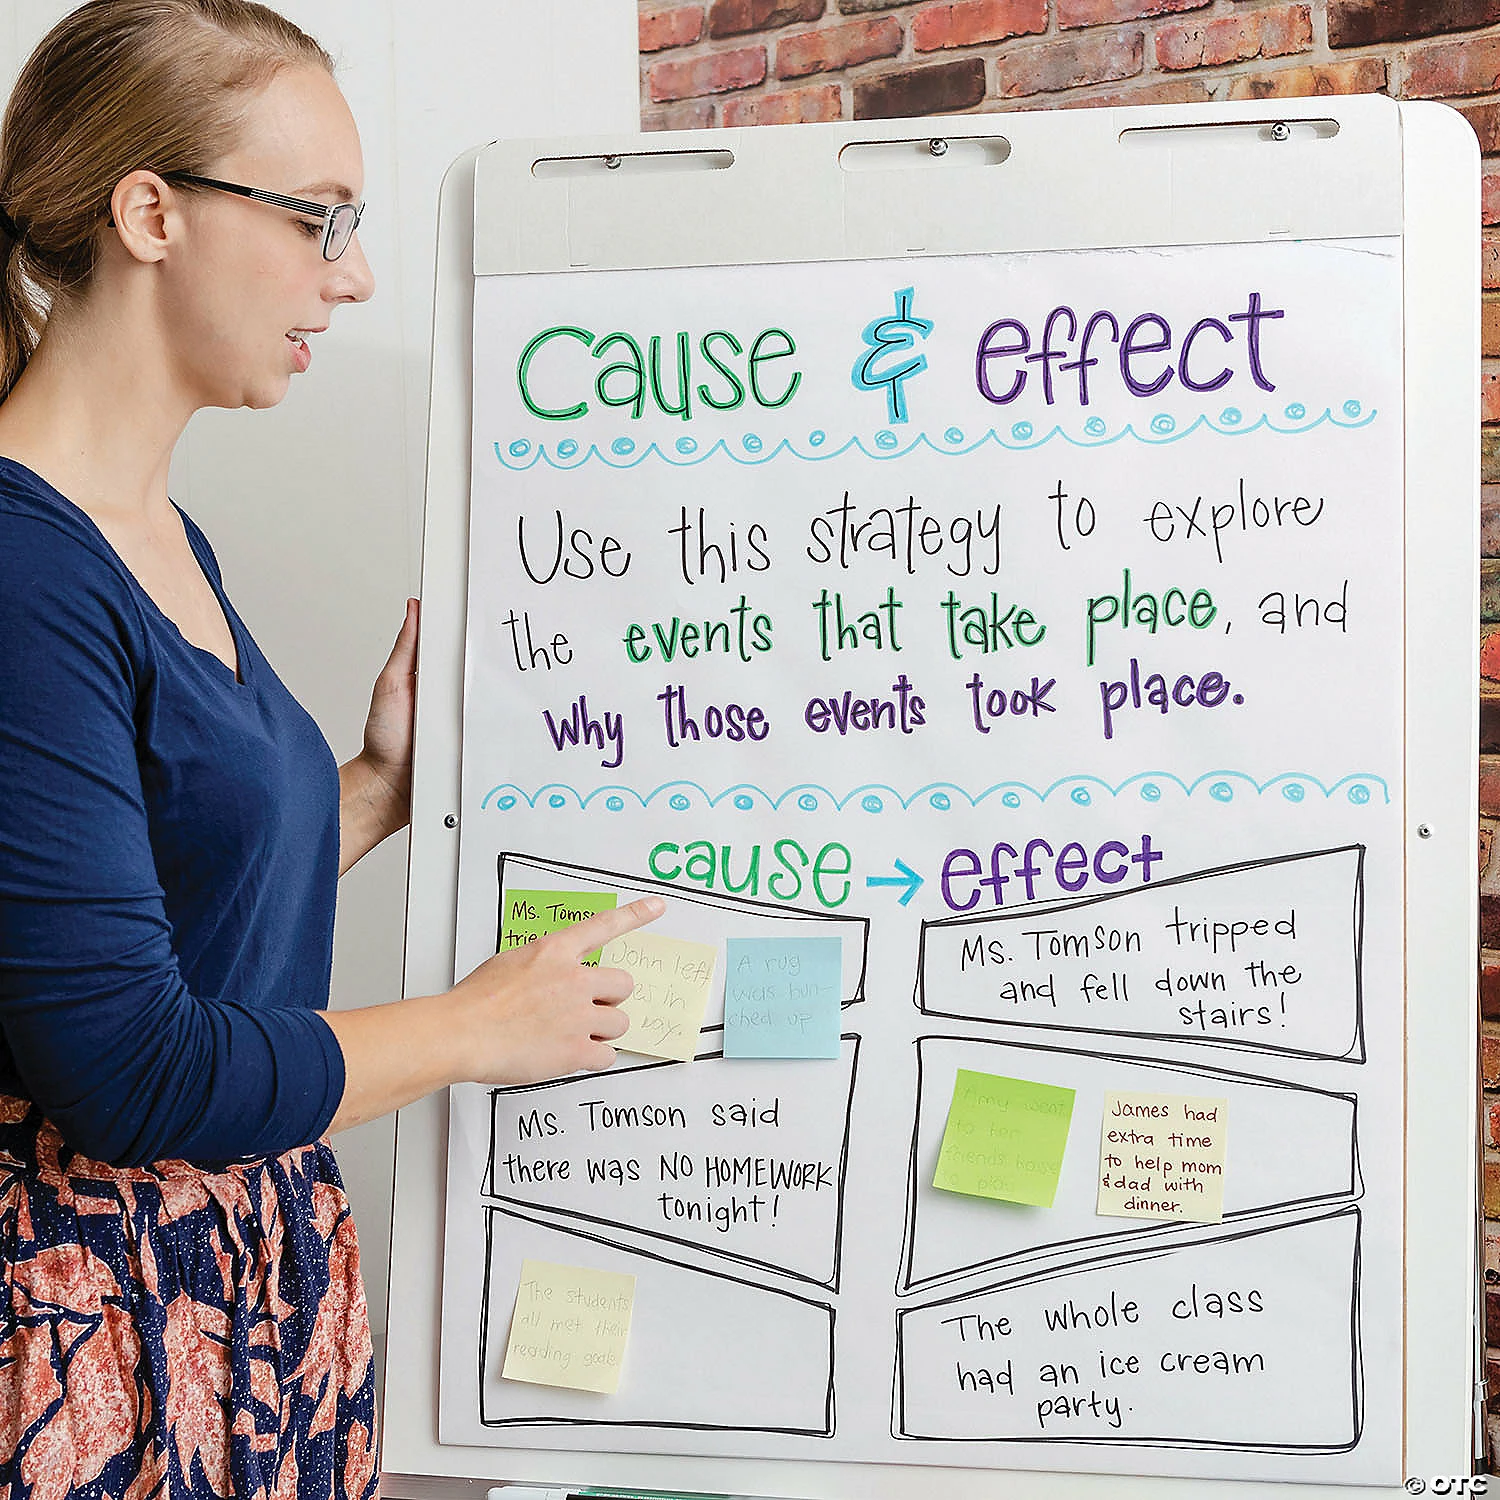 Cause & effect
Use this strategy to explore
the events that take place, and
why those events took place.
cause → effect
Ms. Toms
John left
es in
A rug
was hun-
ched up
Ms. Tomson tripped
and fell down the
stairs!
Ms. Tomson said
there was NO HOMEWORK
tonight!
Amy went
to her
friends house
to play
James had
extra time
to help mom
& dad with
dinner.
The students
all met their
reading goals
The whole class
had an ice cream
party.
© OTC